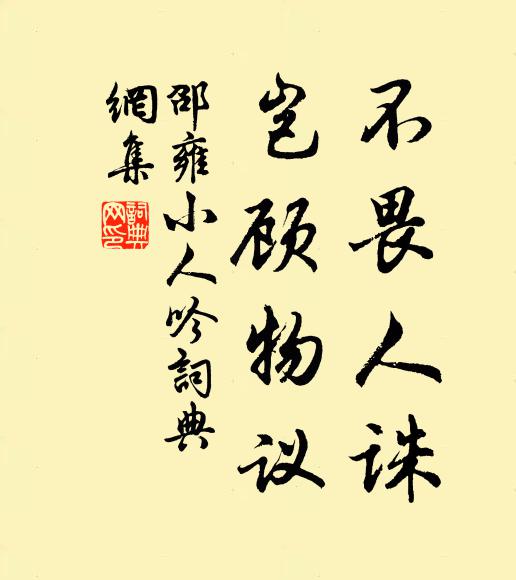 不畏人诛
岂顾物议
邵雍小人吟詞典
網集
詞典
网印